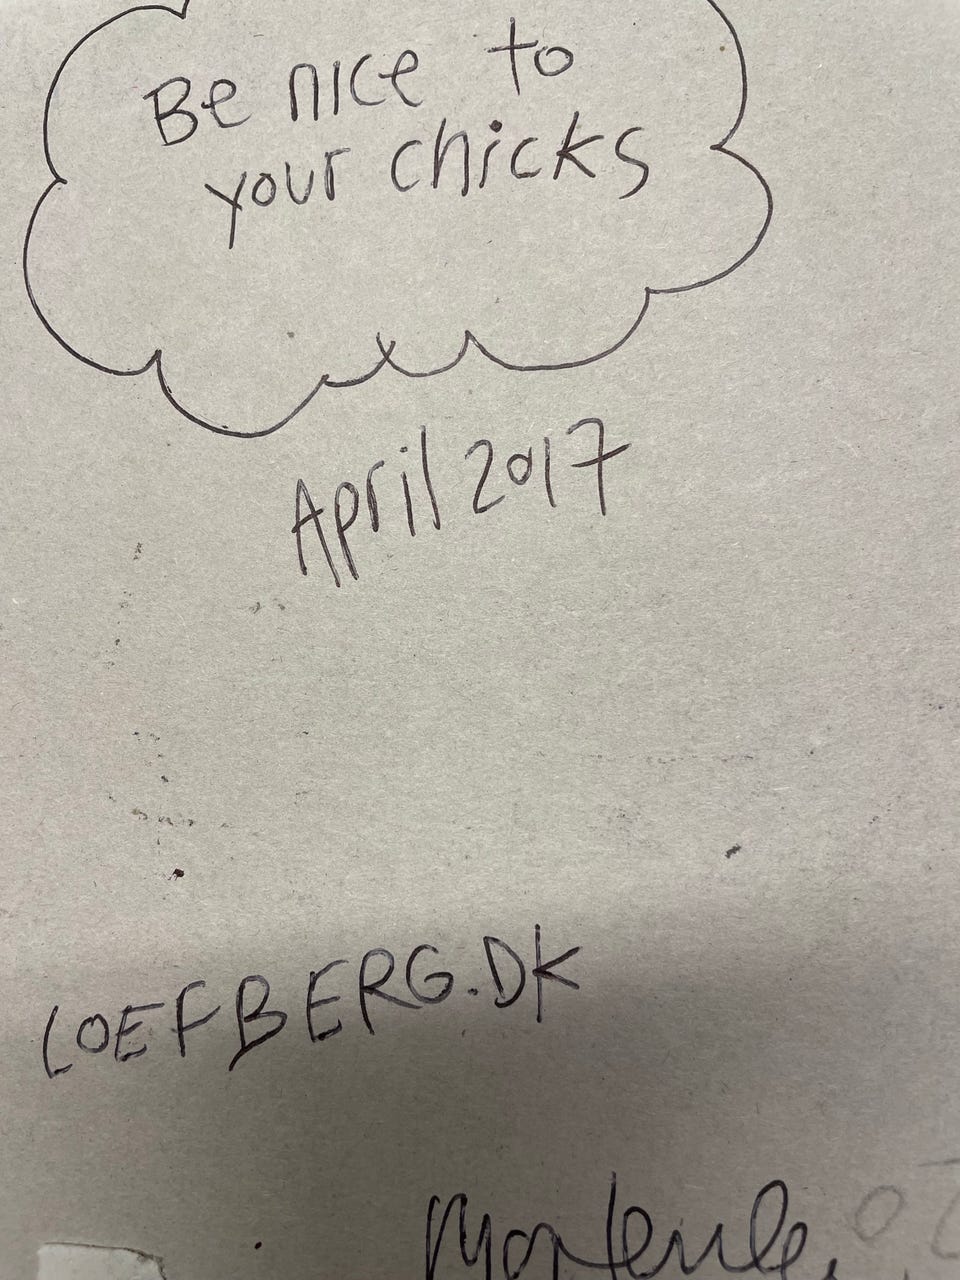 Be nice to
your chicks
April 2017
LOEFBERG.DK